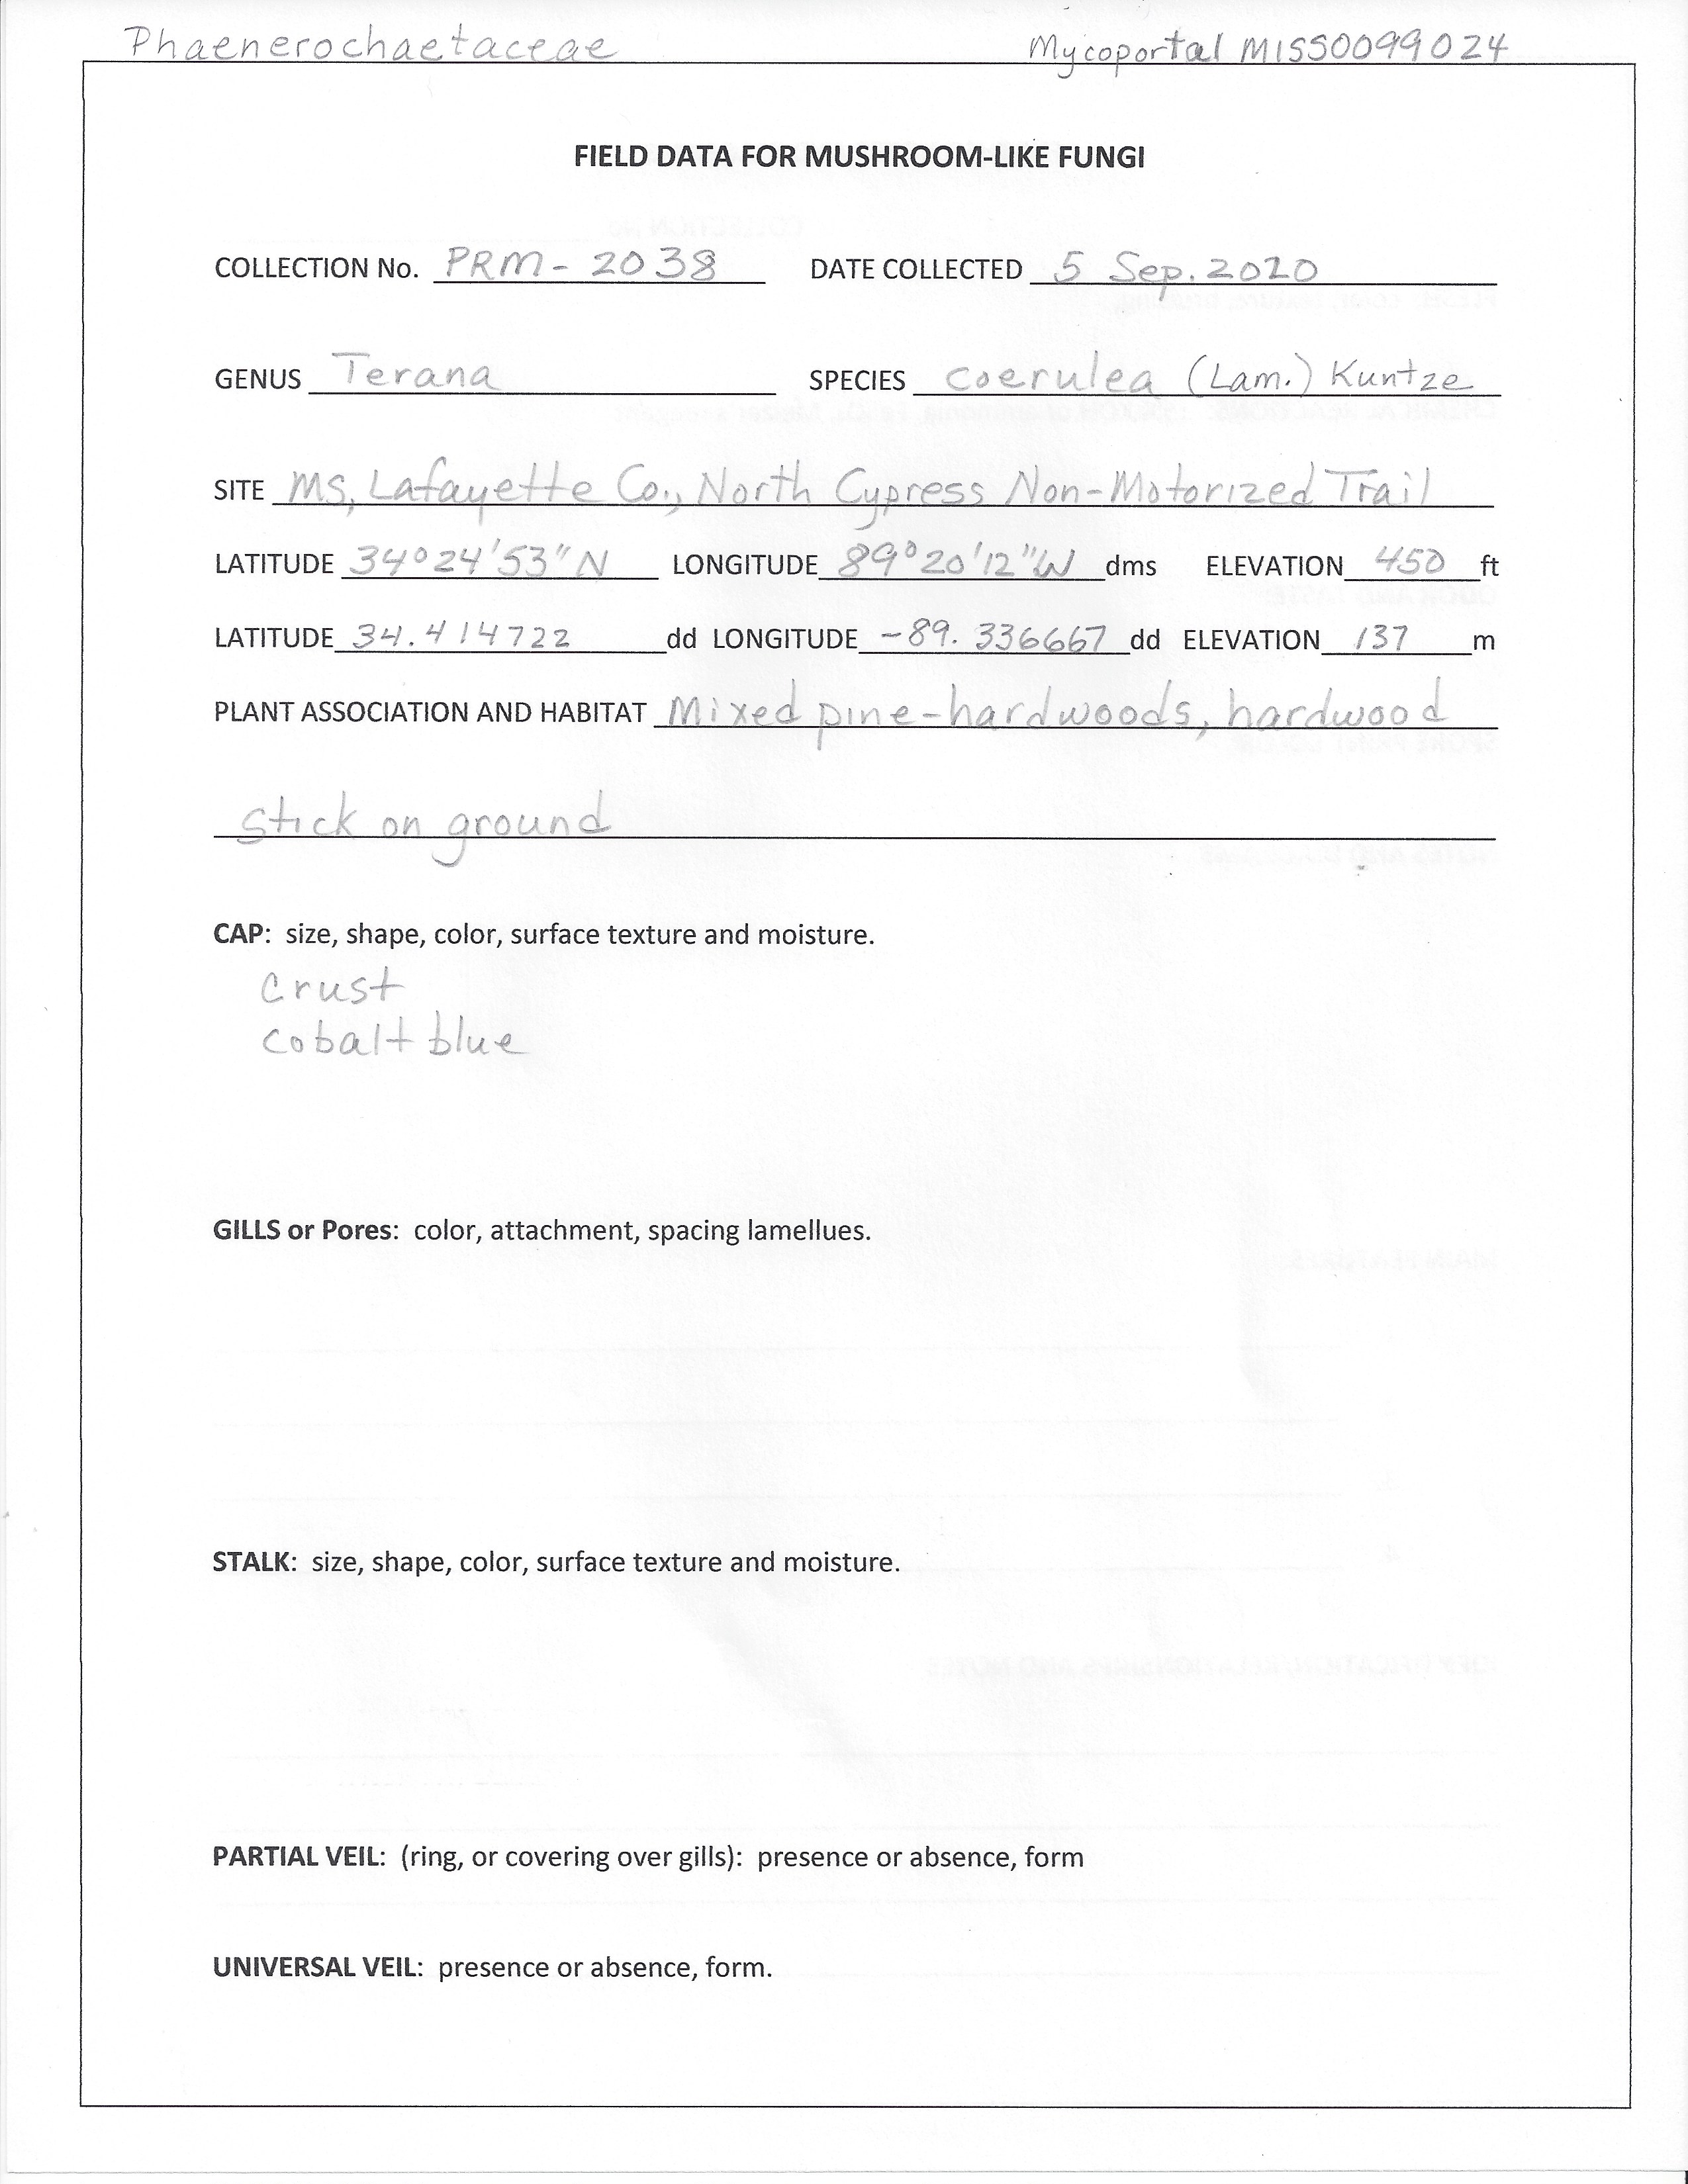 Phaenerochaetaceae Mycoportal MISS0099024
FIELD DATA FOR MUSHROOM-LIKE FUNGI
COLLECTION No. PRM-2038 DATE COLLECTED 5 Sep. 2020
GENUS Terana SPECIES coerulea (Lam.) Kuntze
SITE MS, Lafayette Co., North Cypress Non-Motorized Trail
LATITUDE 34°24'53"N LONGITUDE 89°20'12"W dms ELEVATION 450 ft
LATITUDE 34.414722 dd LONGITUDE -89.336667 dd ELEVATION 137 m
PLANT ASSOCIATION AND HABITAT Mixed pine-hardwoods, hardwood
stick on ground
CAP: size, shape, color, surface texture and moisture.
Crust
cobalt blue
GILLS or Pores: color, attachment, spacing lamellues.
STALK: size, shape, color, surface texture and moisture.
PARTIAL VEIL: (ring, or covering over gills): presence or absence, form
UNIVERSAL VEIL: presence or absence, form.